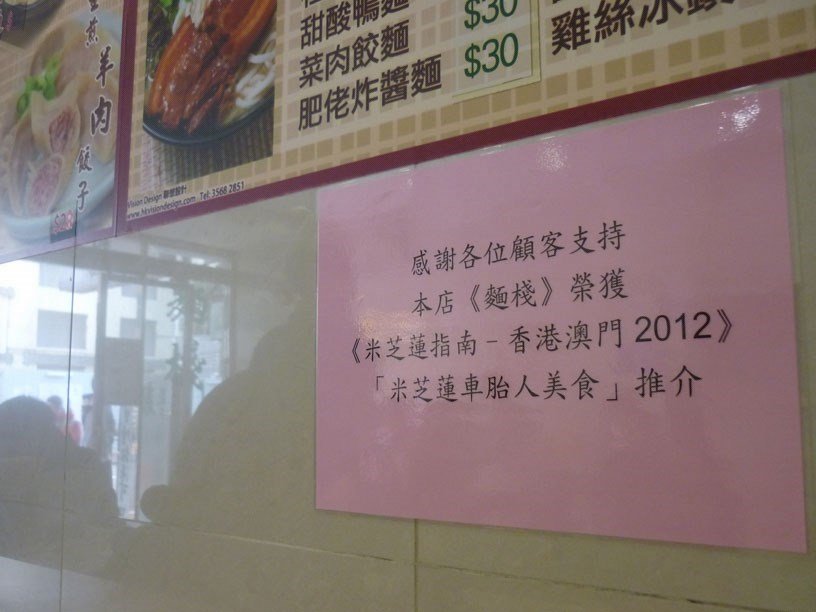 煎羊肉餃子
甜酸鴨麵
$30
菜肉餃麵
$30
肥佬炸醬麵
雞絲冰
Vision Design 聯營設計
www.hkvisiondesign.com Tel: 3568 2851
感謝各位顧客支持
本店《麵棧》榮獲
《米芝蓮指南–香港澳門 2012》
「米芝蓮車胎人美食」推介